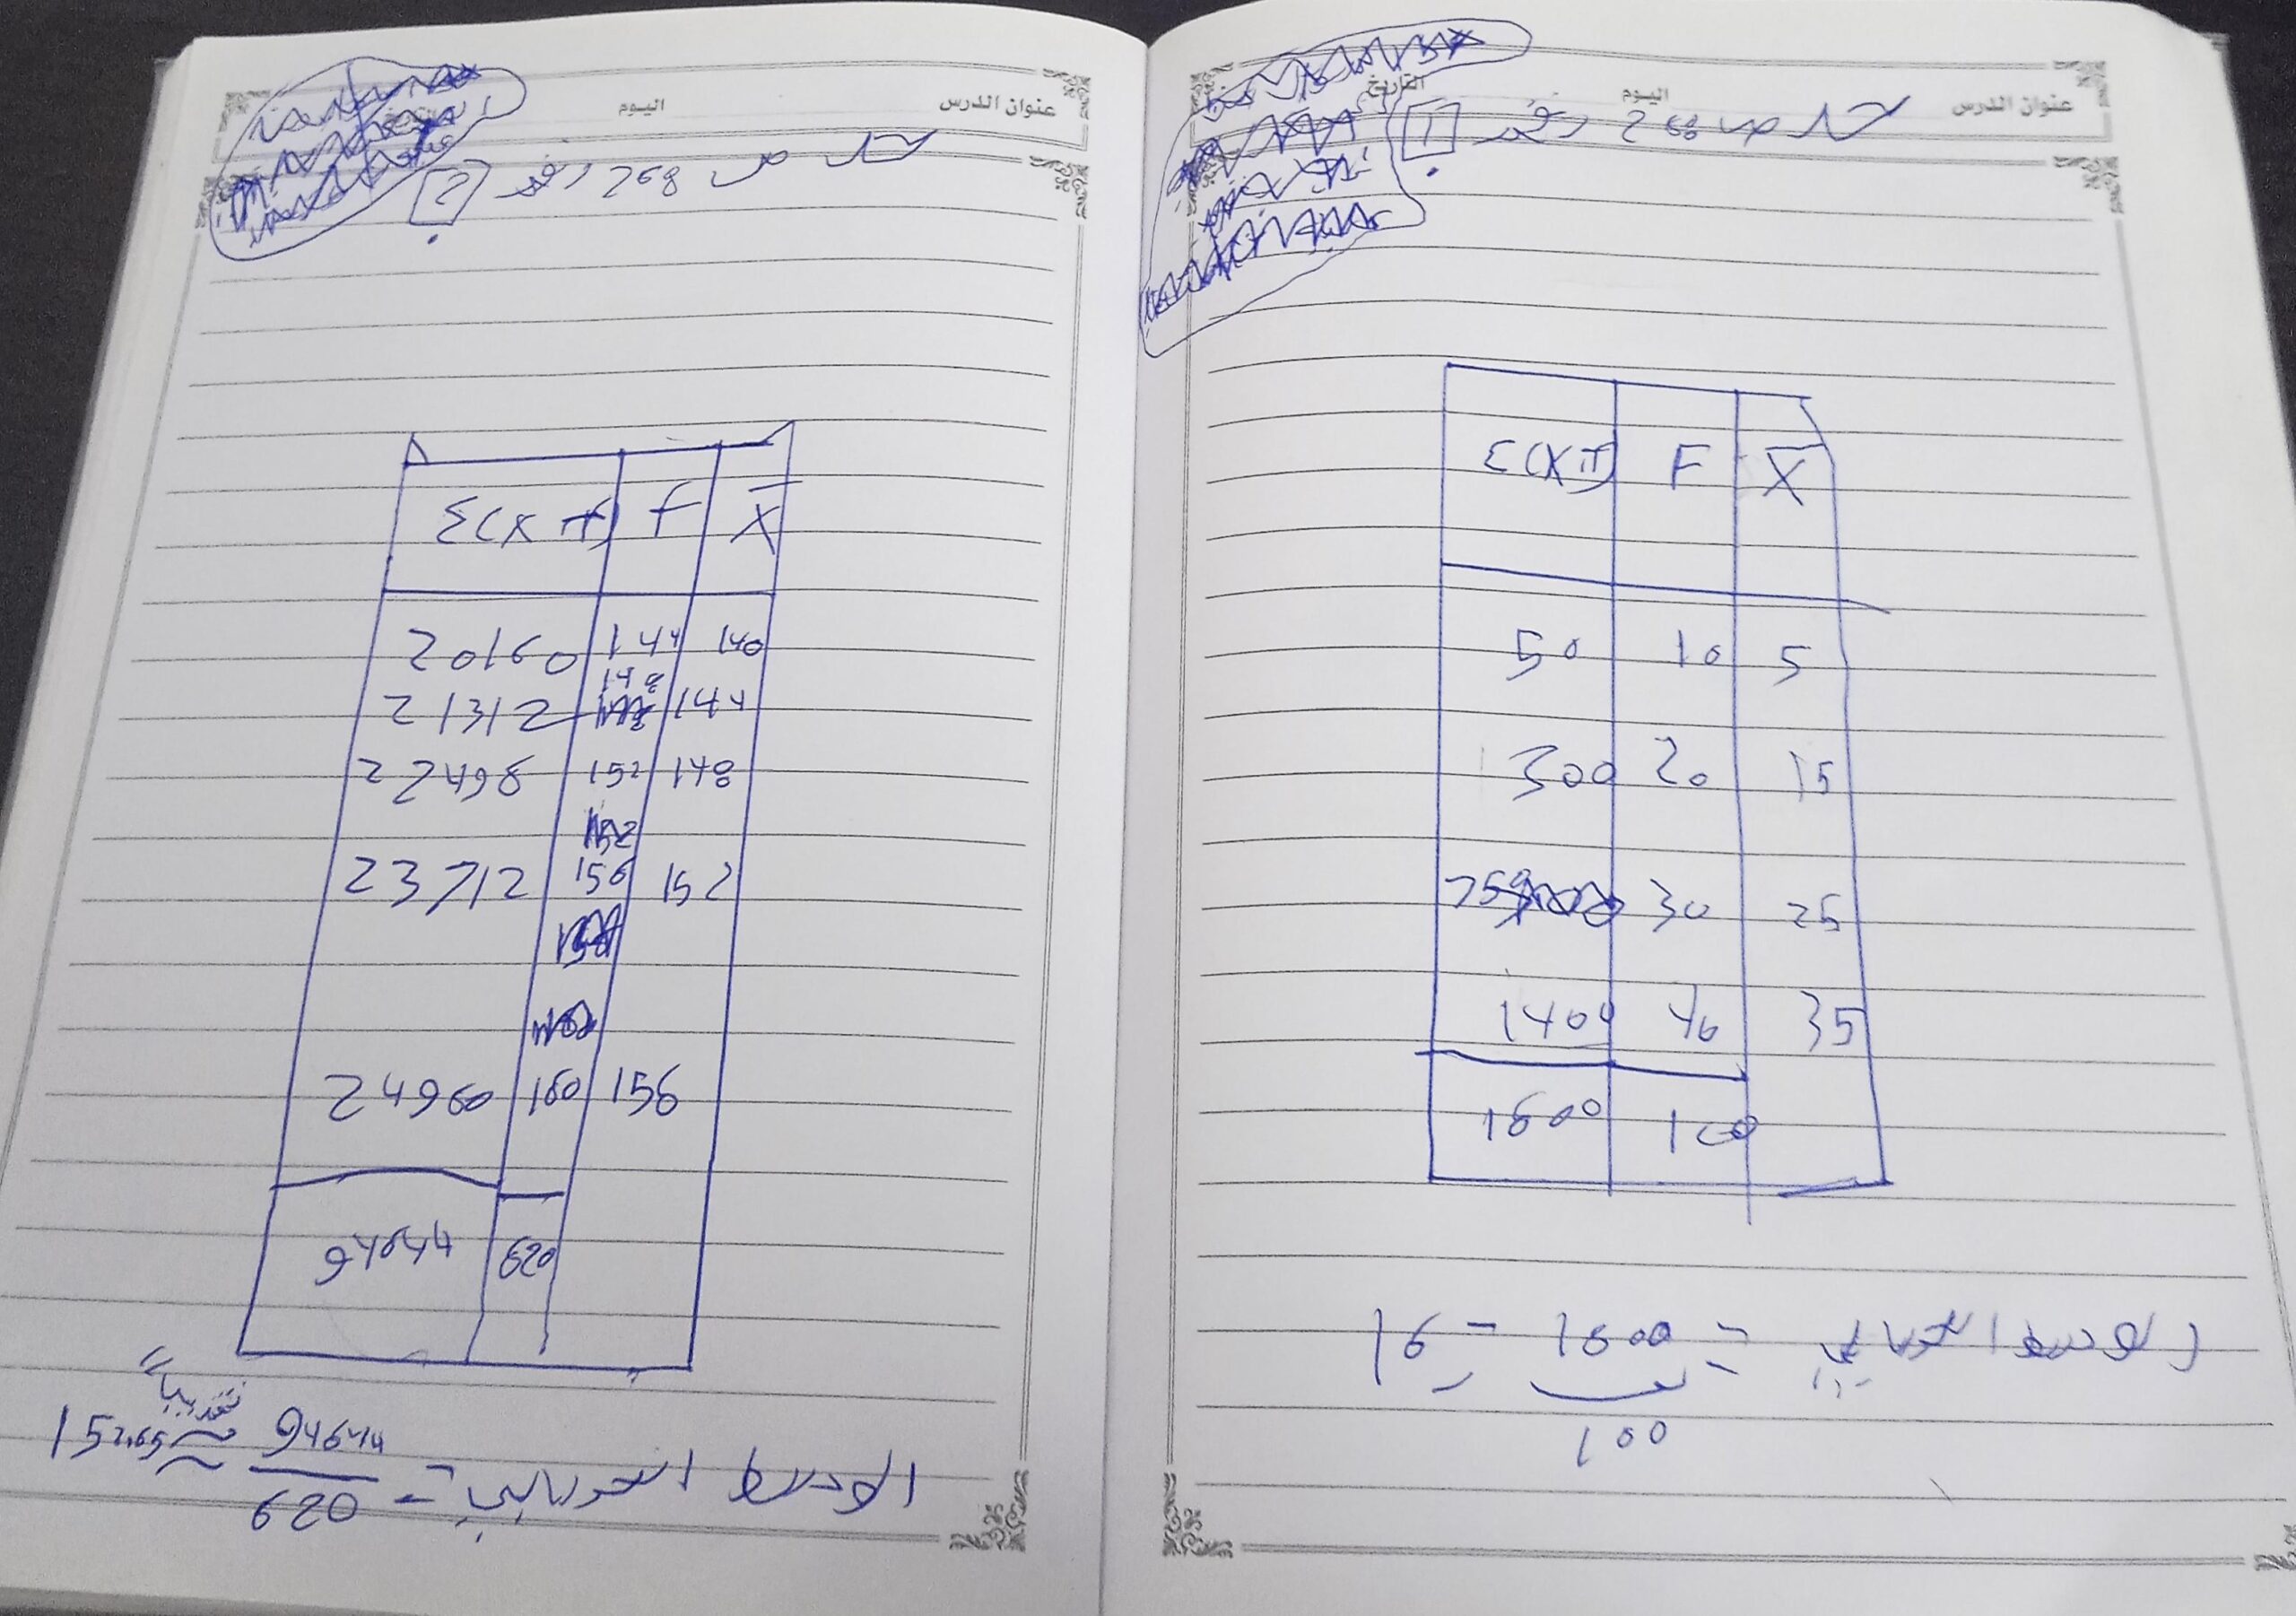 عنوان الدرس اليوم التاريخ
حل ص 268 رقم 1
Σ(XF) F X̄
50 10 5
300 20 15
750 30 25
1400 40 35
1600 100
الوسط الحسابي = 1600 / 100 = 16
عنوان الدرس اليوم
حل ص 268 رقم 2
Σ(X f) f X̄
20160 144 140
21312 148 144
22498 152 148
23712 156 152
24960 160 156
94644 620
الوسط الحسابي = 94644 / 620 ≈ 152.65 تقريبا